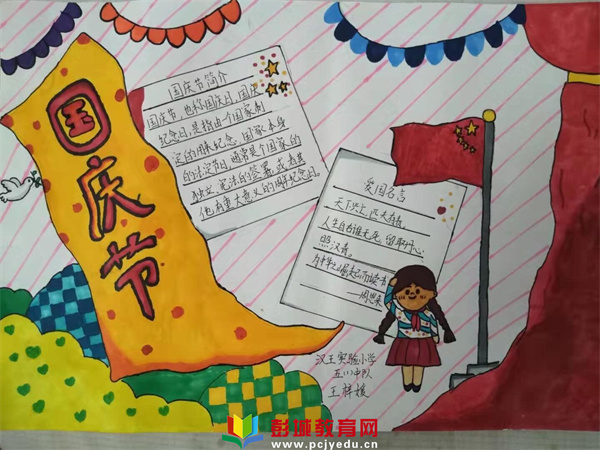 国庆节
国庆节简介
国庆节,也称国庆日、国庆
纪念日,是指由一个国家制
定的用来纪念国家本身
的法定节日,通常是个国家的
独立、宪法的签署,或者其
他有重大意义的周年纪念日。
爱国名言
天下兴亡,匹夫有责。
人生自古谁无死,留取丹心
照汗青。
为中华之崛起而读书
——周恩来
汉王实验小学
五(1)中队
王梓媛
彭城教育网
www.pcjyedu.cn